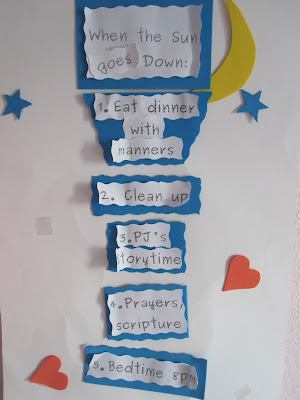 When the Sun
goes Down:
1. Eat dinner
with
manners
2. Clean up
3. PJ's
torytime
4. Prayers,
scripture
5. Bedtime 8pm